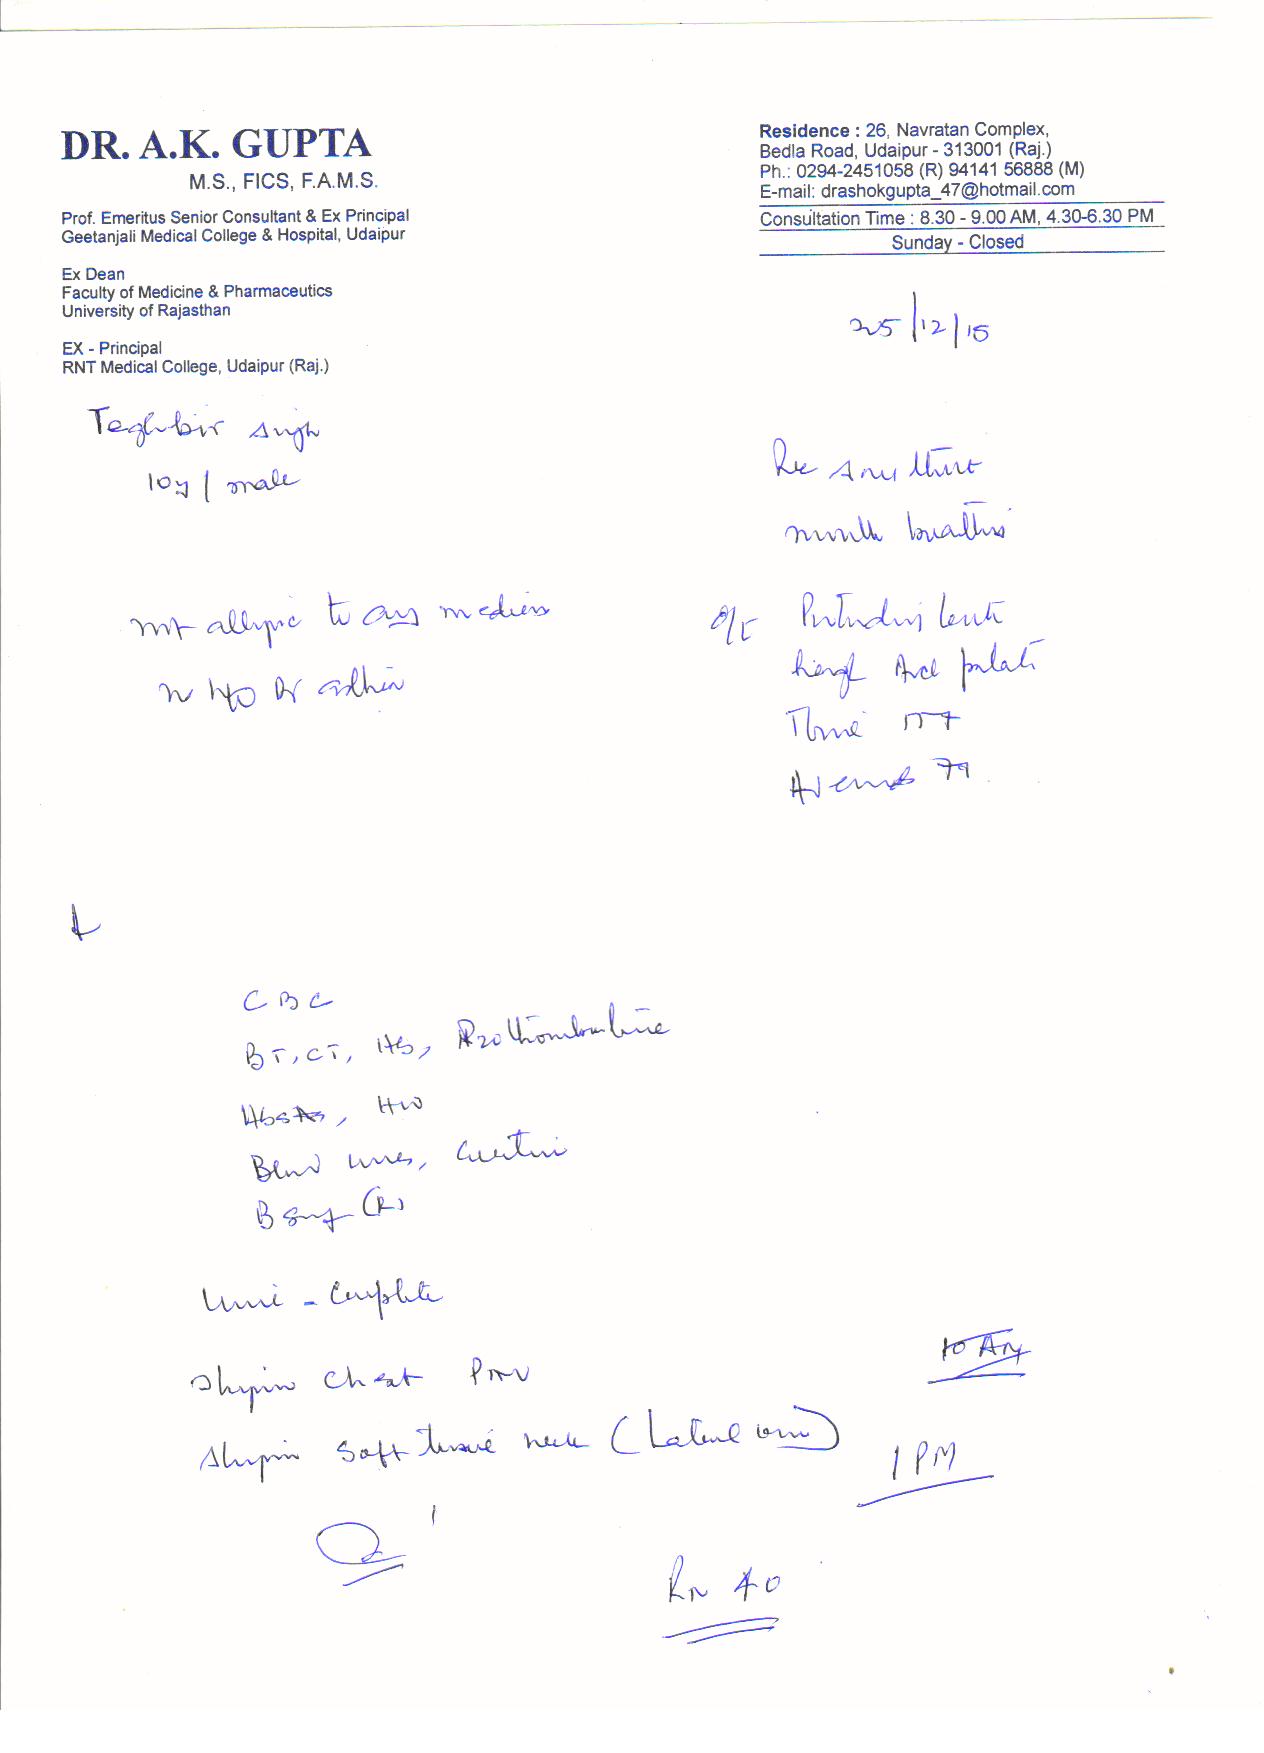 DR. A.K. GUPTA
M.S., FICS, F.A.M.S.
Prof. Emeritus Senior Consultant & Ex Principal
Geetanjali Medical College & Hospital, Udaipur
Ex Dean
Faculty of Medicine & Pharmaceutics
University of Rajasthan
EX - Principal
RNT Medical College, Udaipur (Raj.)
Residence : 26, Navratan Complex,
Bedla Road, Udaipur - 313001 (Raj.)
Ph.: 0294-2451058 (R) 94141 56888 (M)
E-mail: drashokgupta_47@hotmail.com
Consultation Time : 8.30 - 9.00 AM, 4.30-6.30 PM
Sunday - Closed
25/12/15
Teghbir Singh
10y / male
mouth breathing
not allergic to any medicine
H/O
palate
CBC
BT, CT, Hb,
HIV
Blood urea,
B sugar (R)
Urine - Complete
Chest
Soft tissue neck (Lateral view)
10 AM
1 PM
40